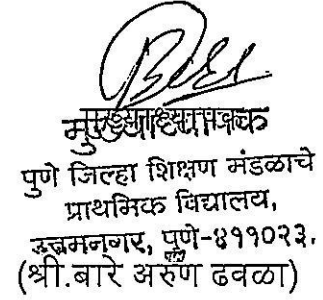 मुख्याध्यापक
पुणे जिल्हा शिक्षण मंडळाचे
प्राथमिक विद्यालय,
पुणे-४११०२३.
(श्री.बारे अरुण ढवळा)